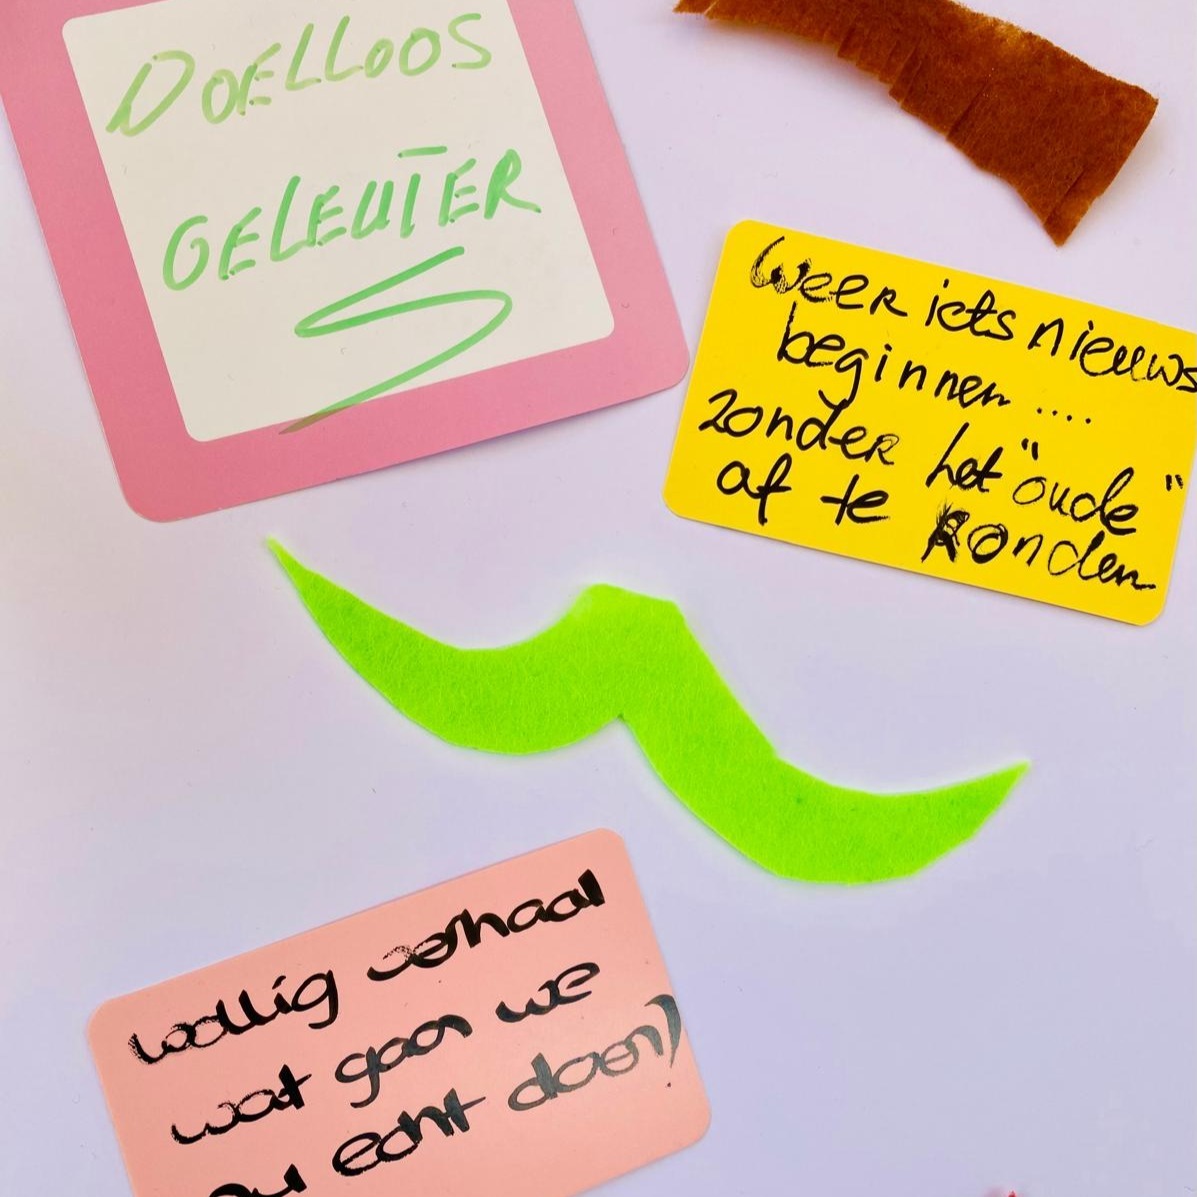 DOELLOOS
GELEUTER
WEER iets nieuws
beginnen ....
zonder het "oude"
af te Ronden
wollig verhaal
wat gaan we
nu echt doen?